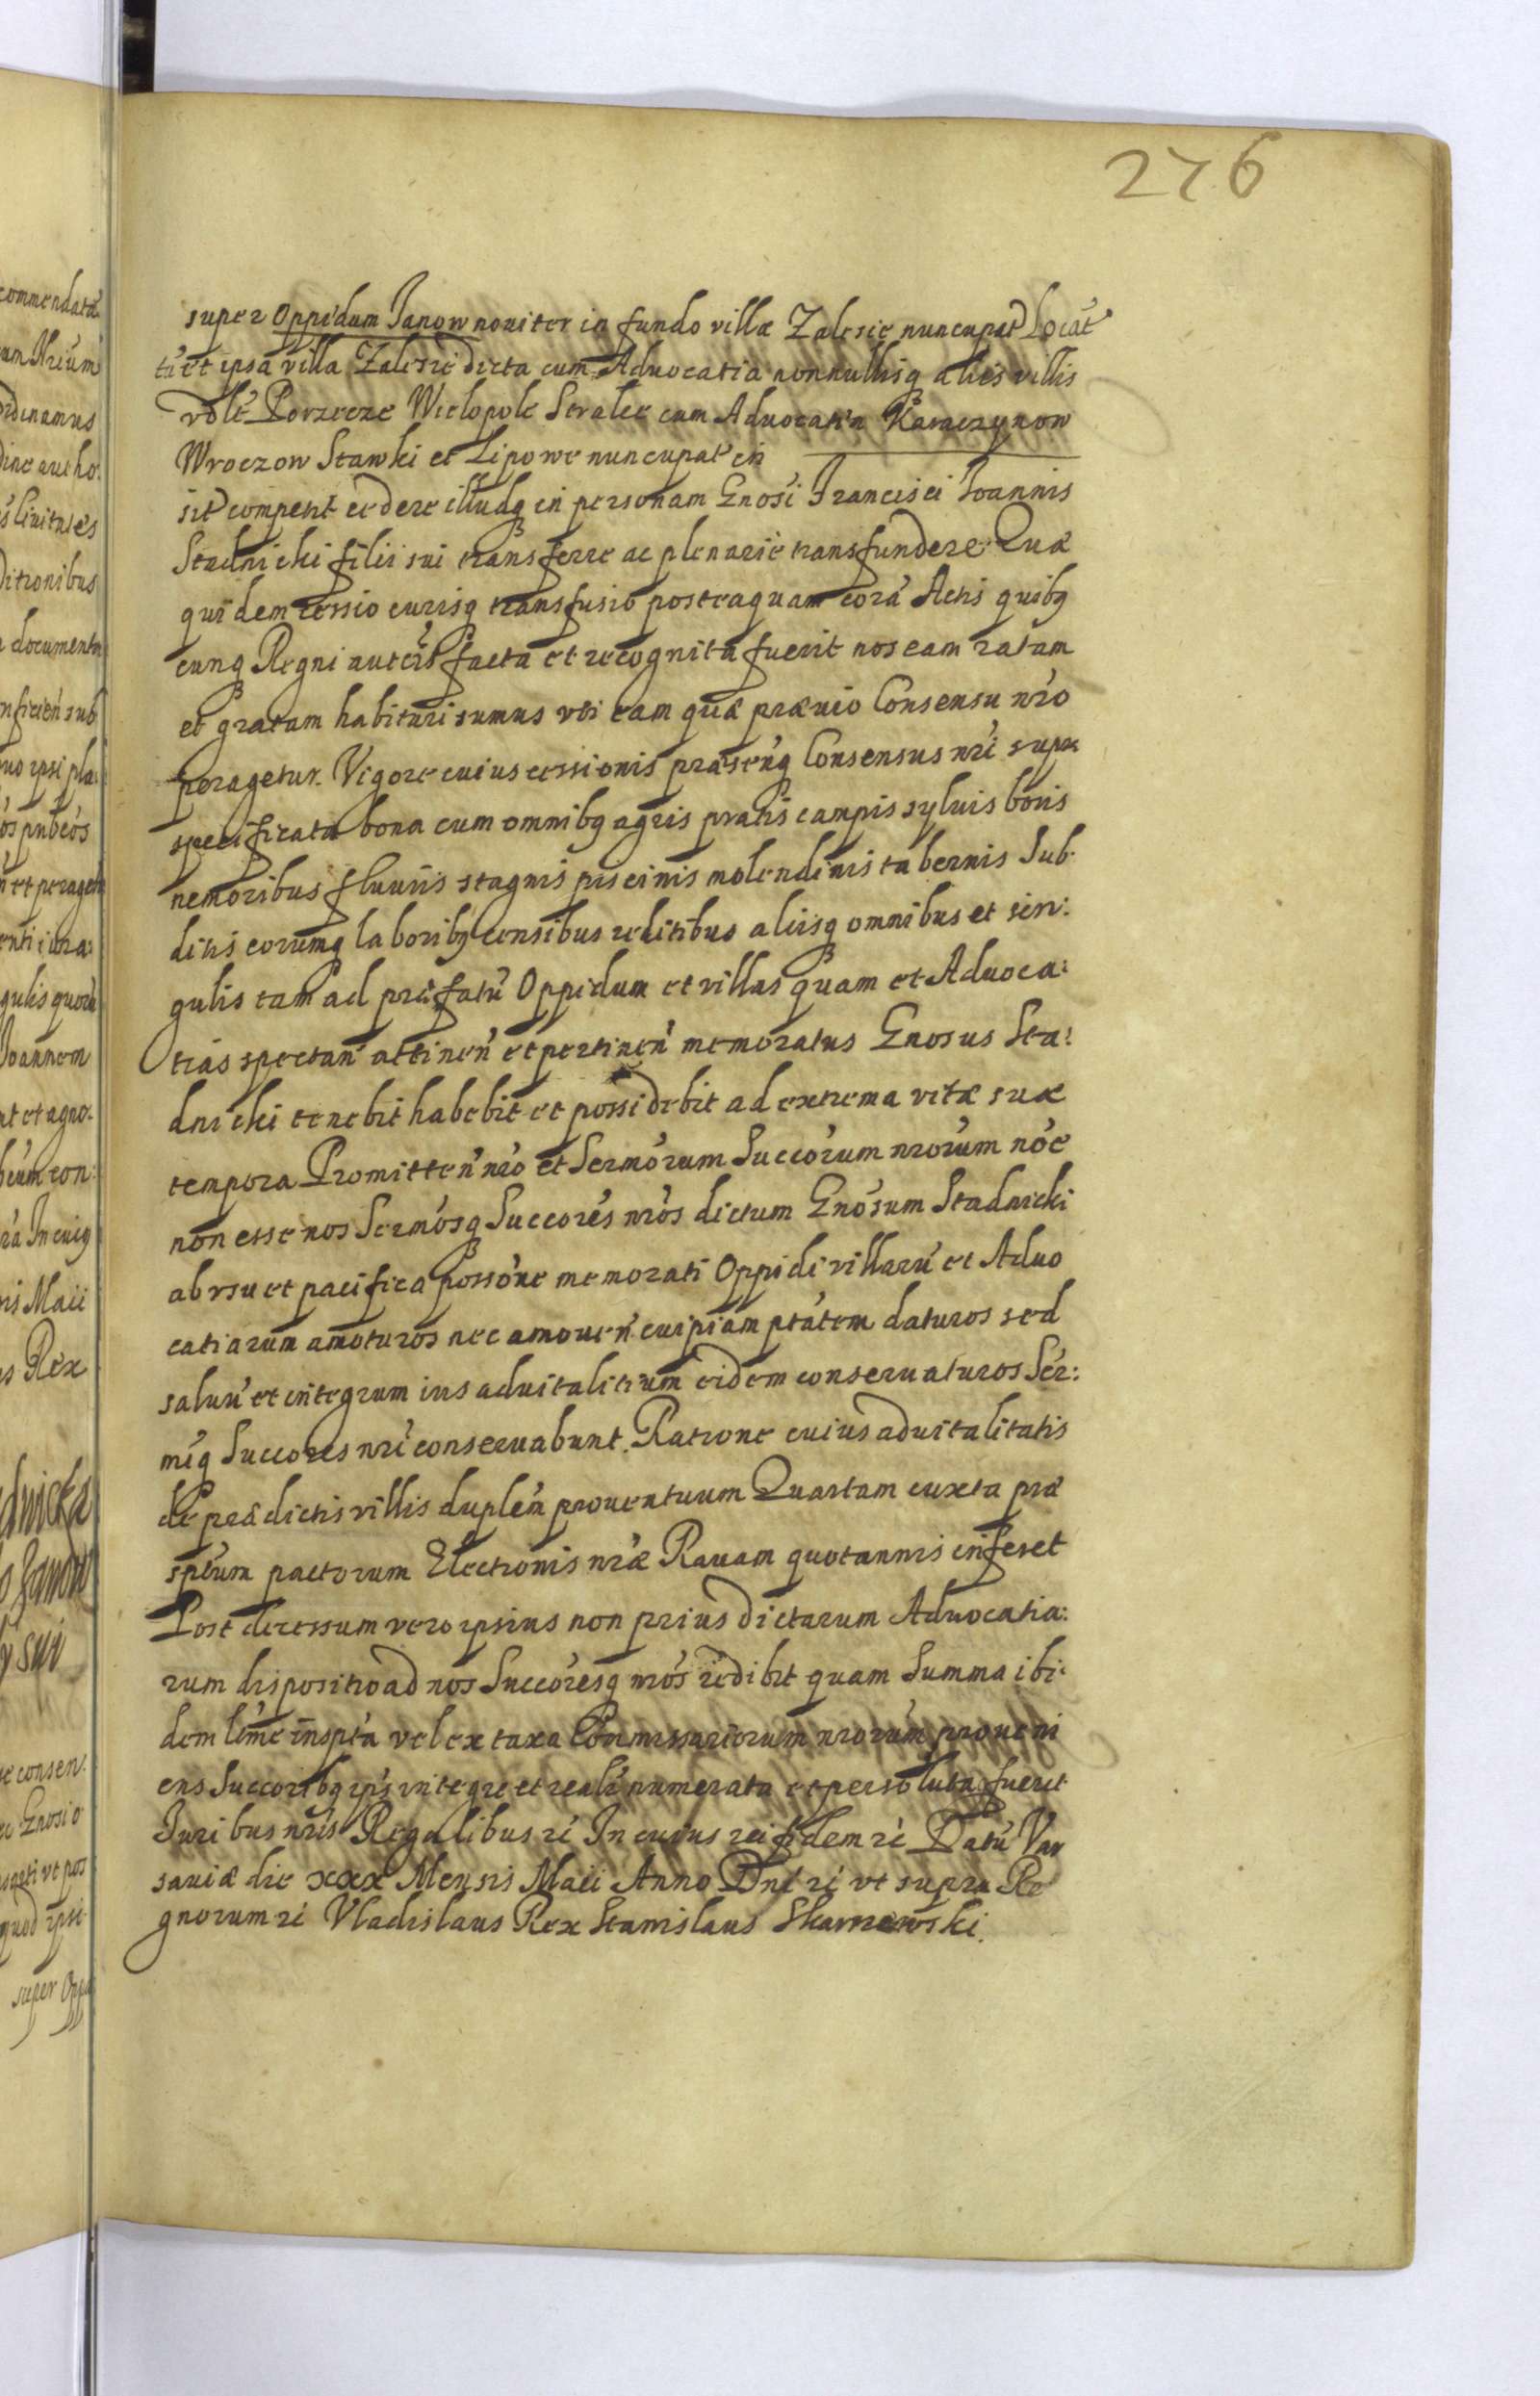 276
super Oppidum Janow noviter in fundo villæ Zalesie nuncupat Locat
tú et ipsa villa Zalesie dicta cum Advocatia nonnullisq aliis villis
vdlt Porzecze Wielopole Stralec cum Advocatia Karaczynow
Wroczow Stawki et Lipowe nuncupat in
sit competit cedere illudq in personam Gnosi Francisci Joannis
Stadnicki filii sui transferre ac plenarie transfundere Quæ
quidem cessio eurisq transfusio posteaquam corá Actis quibq
cunq Regni autcis facta et recognita fuerit nos eam ratam
et gratam habituri sumus vti eam quæ prævio Consensu nro
peragetur. Vigore cuius cessionis præsenq Consensus nri supra
specificata bona cum omnibq agris pratis campis syluis boris
nemoribus fluuiis stagnis piscinis molendinis tabernis Sub
ditis eorumq laboribq censibus reditibus aliisq omnibus et sin:
gulis tam ad præfatú Oppidum et villas quam et Aduoca:
tias spectan attinen et pertinen memoratus Gnosus Sta:
dnicki tenebit habebit et possidebit ad extrema vitæ suæ
tempora Promitten nro et Sermorum Succorum nrorum noe
non esse nos Sermosq Succores nros dictum Gnosum Stadnicki
ab vsu et pacifica possone memorati Oppidi villarú et Aduo
catiarum amoturos nec amouen cuipiam ptatem daturos sed
saluú et integrum ius aduitalitium eidem conseruaturos Ser:
miq Succores nri conseruabunt. Ratione cuius aduitalitatis
de prædictis villis duplem prouentuum Quartam iuxta præ
sptum pactorum Electionis nræ Rauam quotannis inferet
Post decessum vero ipsius non prius dictarum Aduocatia:
rum dispositio ad nos Succoresq nros redibit quam Summa ibi
dem ltme inspta vel ex taxa Commissariorum nrorum proueni
ens Succoribq ipsi integre et realr numerata et persoluta fuerit
Juribus nris Regalibus ri In cuius rei fidem ri Datú Var
sauiæ die xxx Mensis Maii Anno Dni ri vt supra Re
gnorum ri Vladislaus Rex Stanislaus Skarszewski.